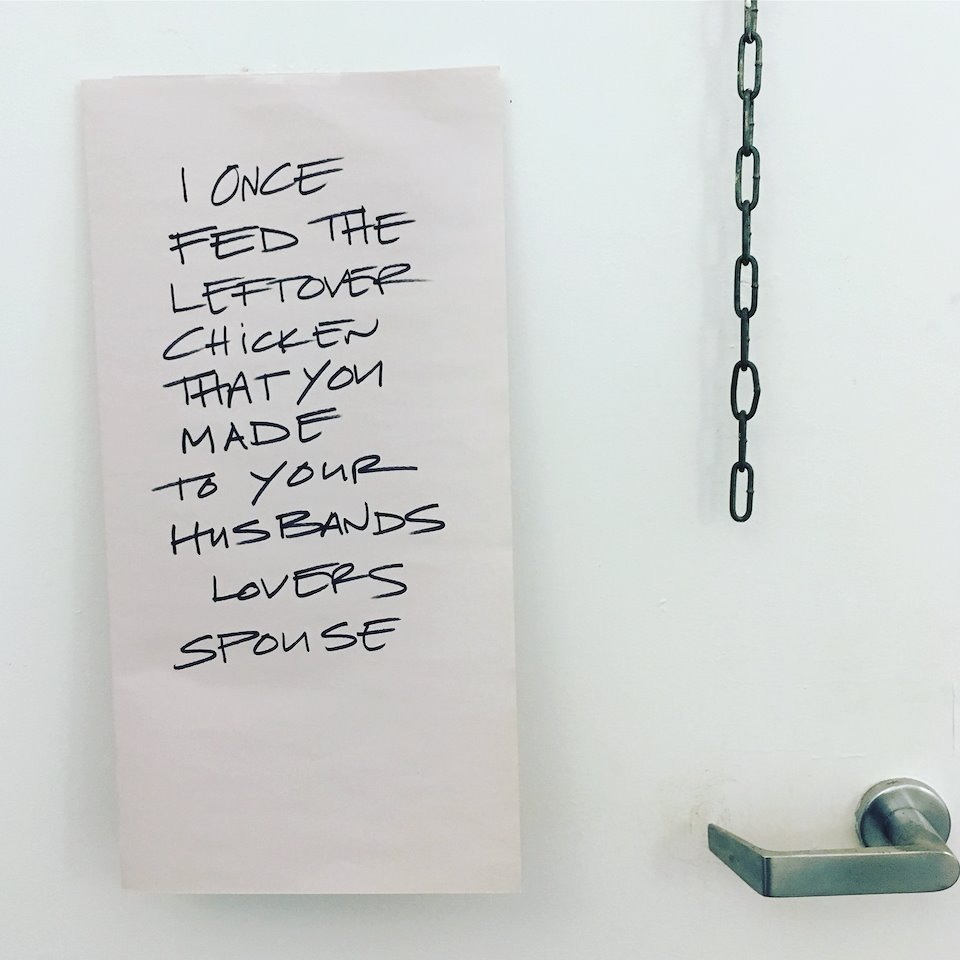 I ONCE
FED THE
LEFTOVER
CHiCKEN
THAT YOU
MADE
TO YOUR
HUSBANDS
LOVERS
SPOUSE